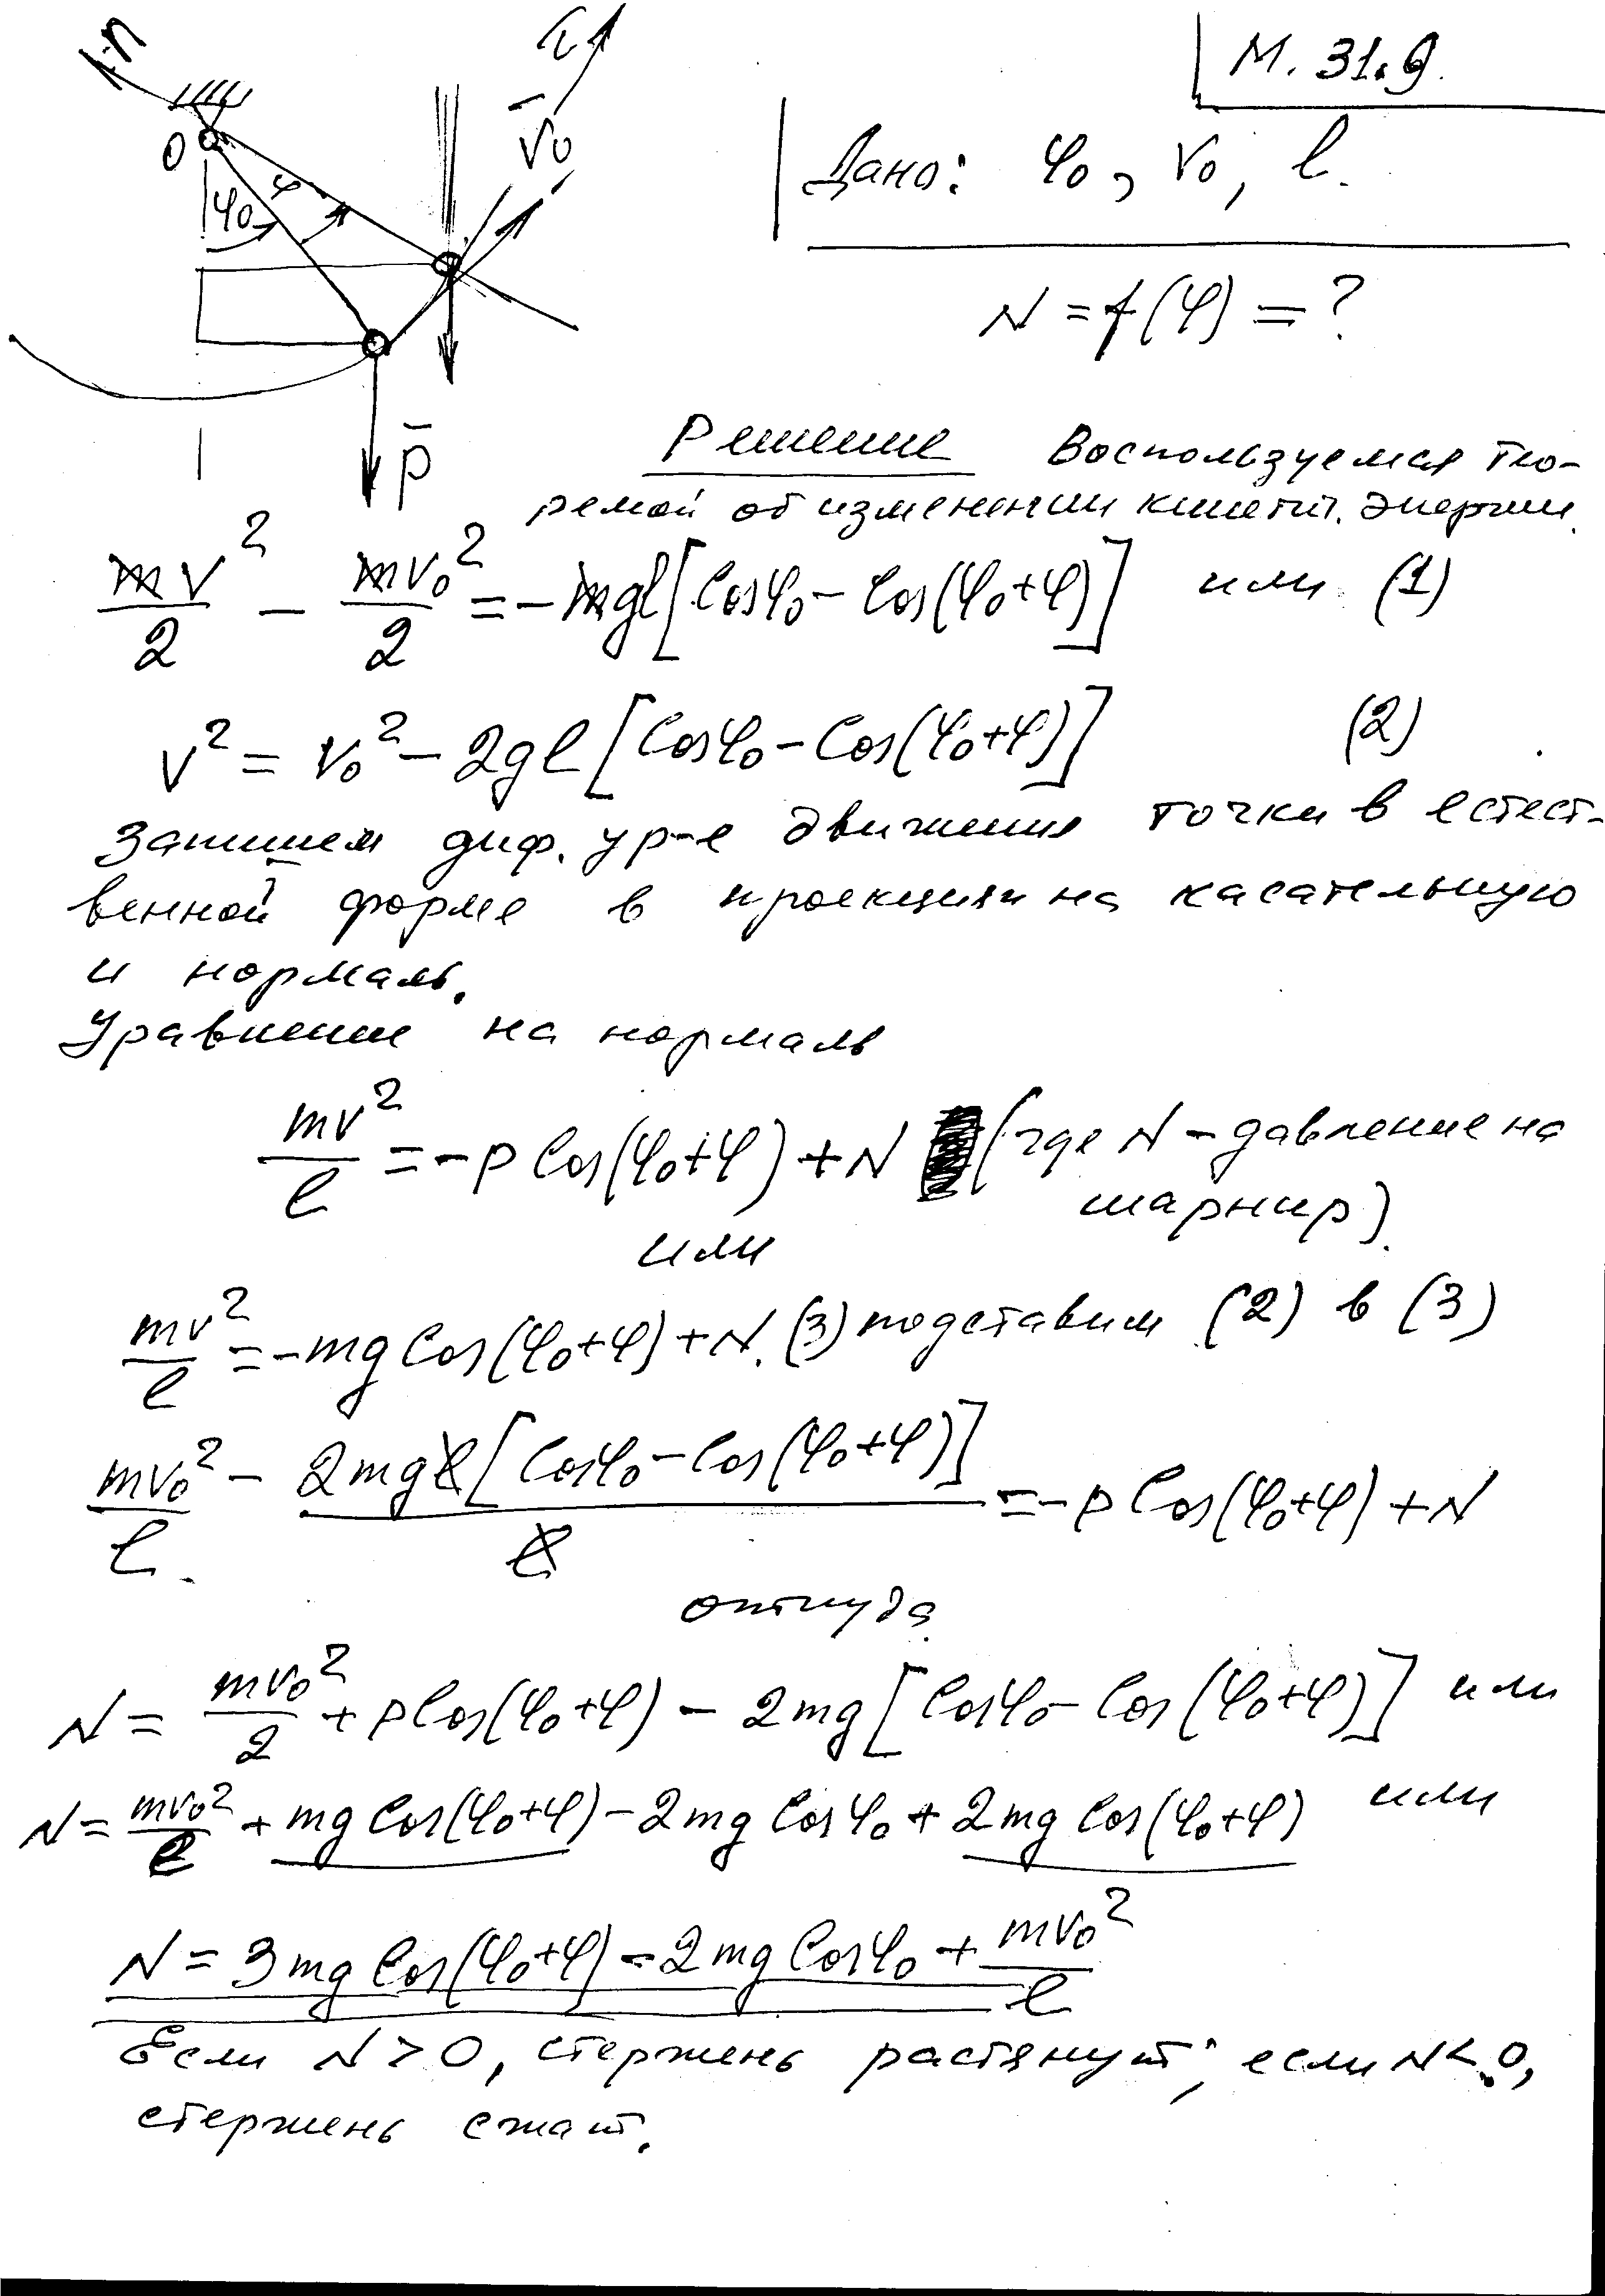 М. 31.9.
n
τ
v̄₀
O
φ₀
φ
p̄
Дано: φ₀, v₀, l.
N = f(φ) = ?
Решение Воспользуемся тео-
ремой об изменении кинетич. энергии.
mv²/2 - mv₀²/2 = -mgl[Cosφ₀ - Cos(φ₀+φ)] или (1)
v² = v₀² - 2gl[Cosφ₀ - Cos(φ₀+φ)] (2)
Запишем диф. ур-е движения точки в естест-
венной форме в проекциях на касательную
и нормаль.
Уравнение на нормаль
mv²/l = -p Cos(φ₀+φ) + N (где N - давление на
шарнир).
или
mv²/l = -mg Cos(φ₀+φ) + N. (3) подставим (2) в (3)
mv₀²/l - 2mgl[Cosφ₀ - Cos(φ₀+φ)]/l = -p Cos(φ₀+φ) + N
откуда
N = mv₀²/2 + pCos(φ₀+φ) - 2mg[Cosφ₀ - Cos(φ₀+φ)] или
N = mv₀²/l + mg Cos(φ₀+φ) - 2mg Cosφ₀ + 2mg Cos(φ₀+φ) или
N = 3mg Cos(φ₀+φ) - 2mg Cosφ₀ + mv₀²/l
Если N > 0, стержень растянут; если N < 0,
стержень сжат.